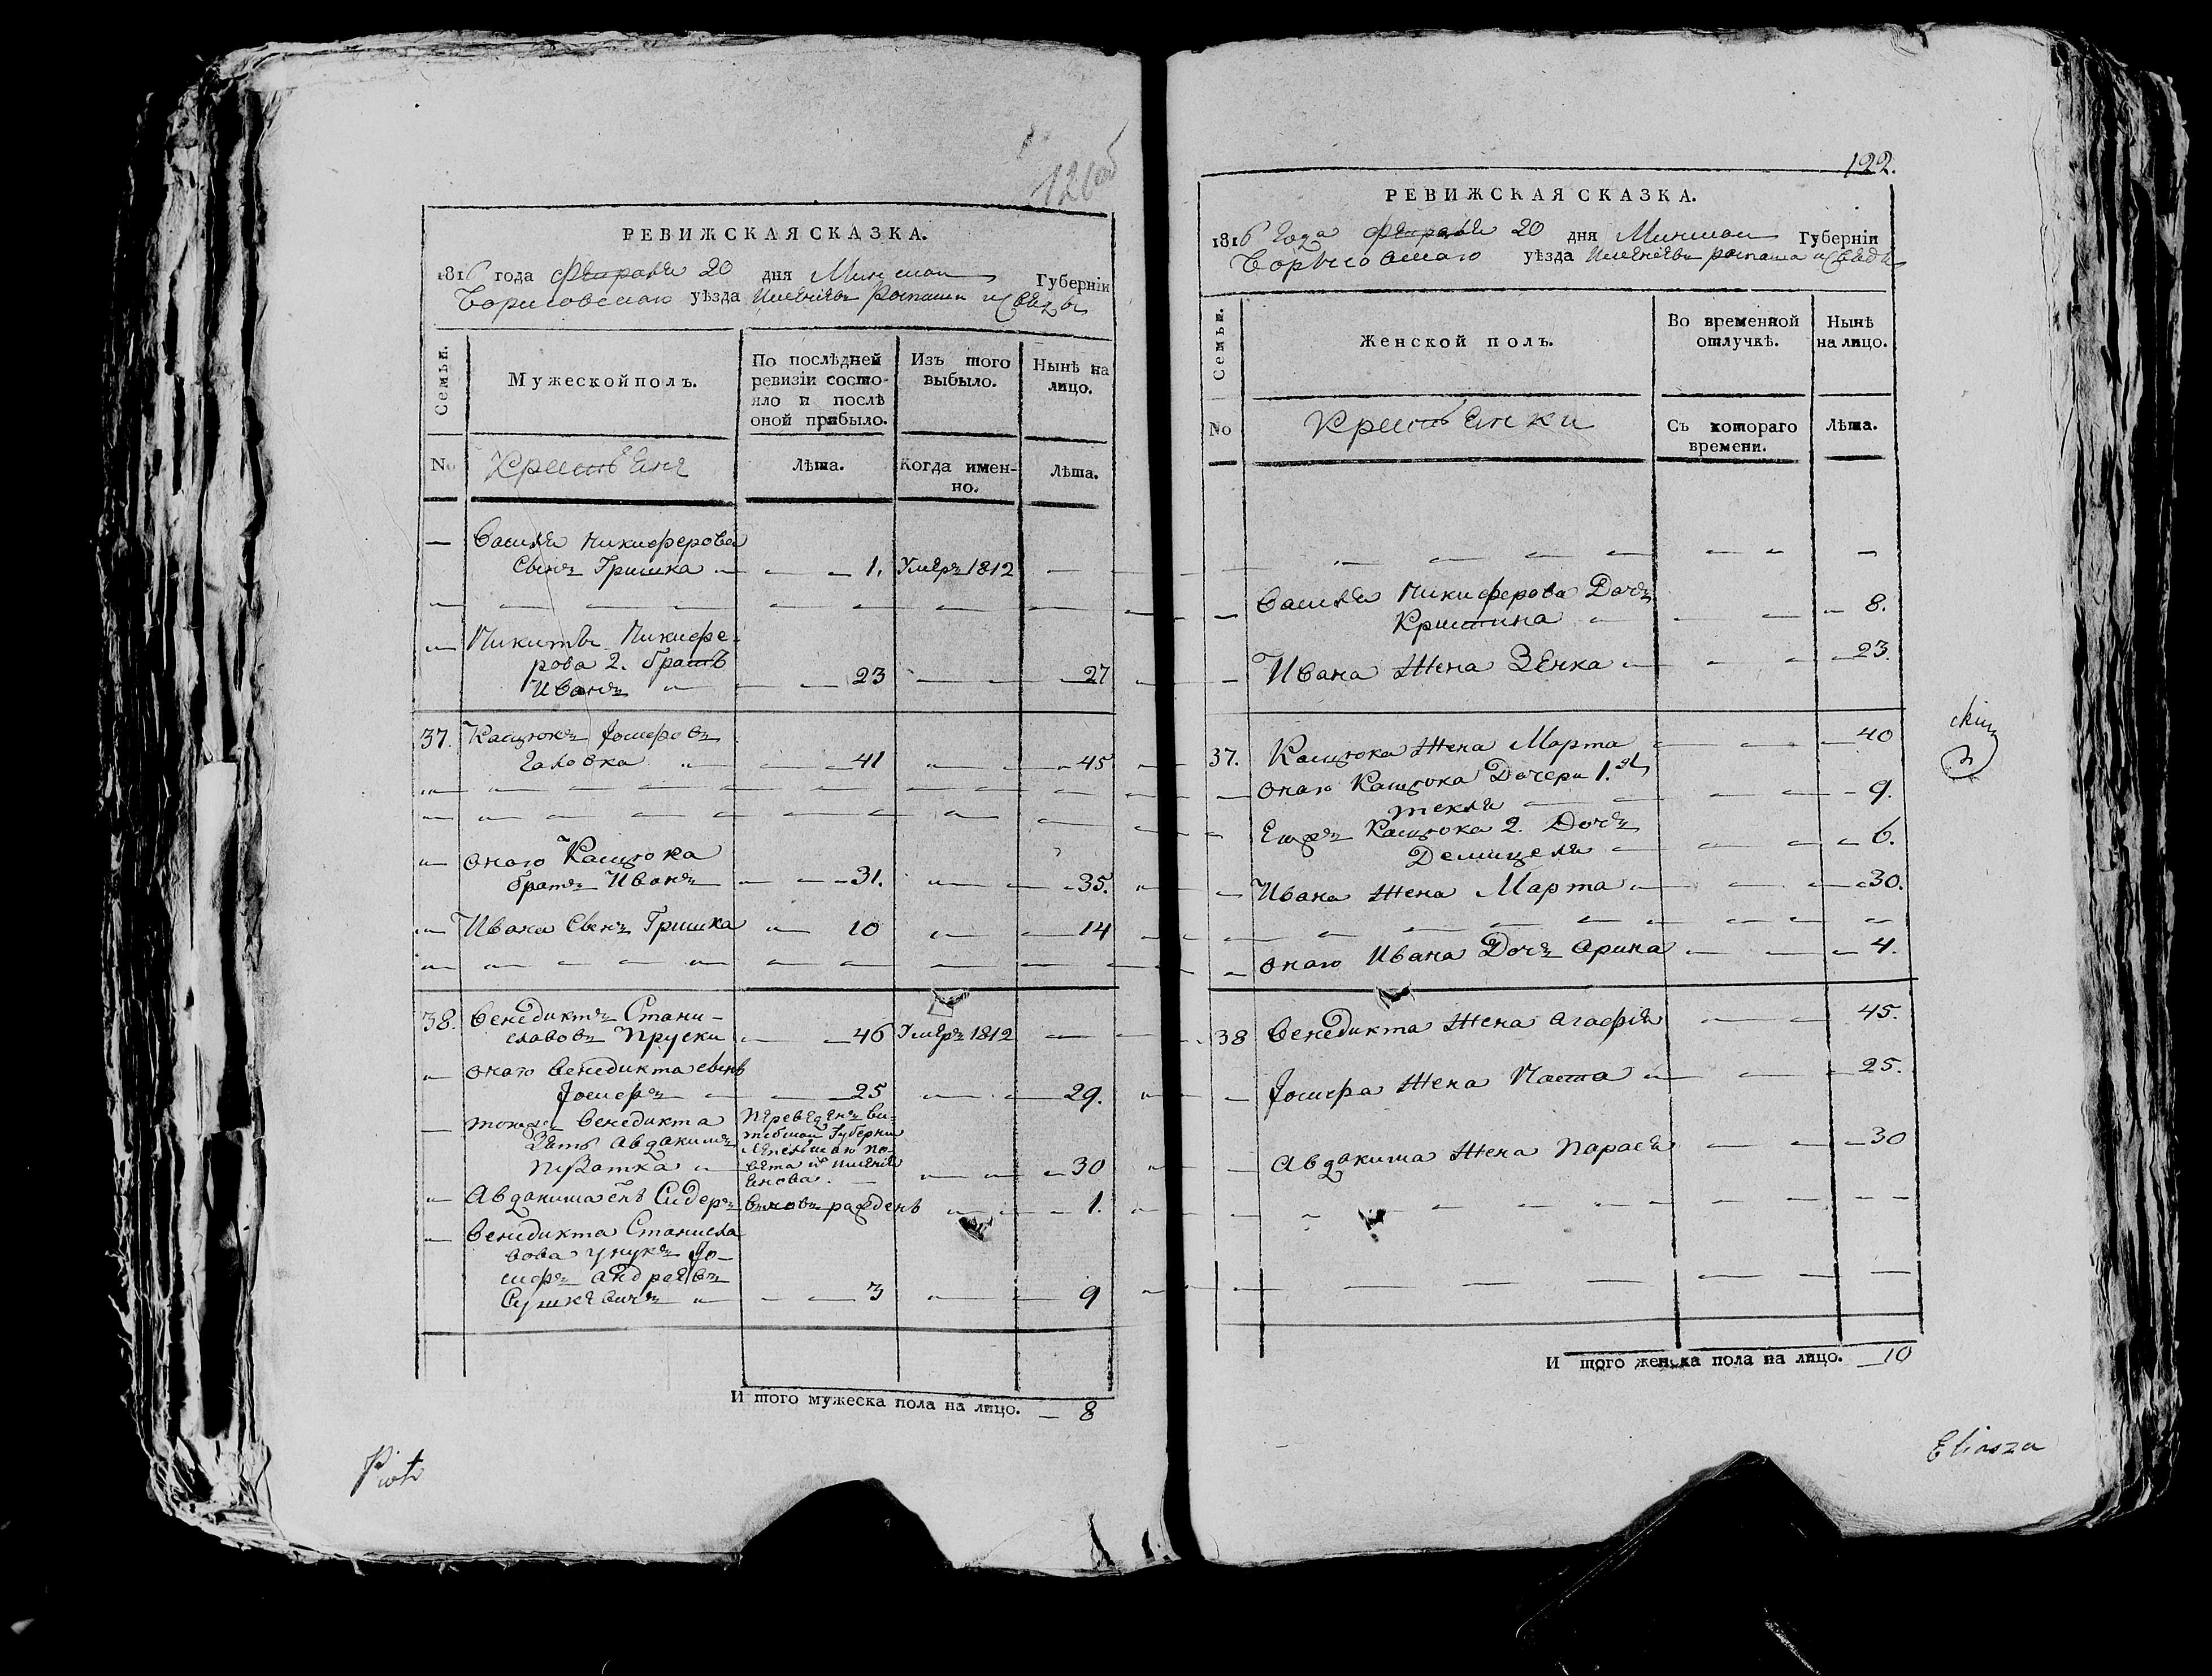 121об
РЕВИЖСКАЯ СКАЗКА.
1816 года Февраля 20 дня Минской Губерніи
Борисовскаго уѣзда
Семьи.
Мужеской полъ.
По послѣдней ревизіи состояло и послѣ оной прибыло.
Изъ того выбыло.
Нынѣ на лицо.
No
Крестьяне
Лѣта.
Когда именно.
Лѣта.
— Василя Никиферова
сынъ Гришка — 1. Умеръ 1812 —
— Никиты Никифе-
рова 2. братъ
Иванъ — 23 — 27
37. Касцюкъ Іосифовъ
Галовка — 41 — 45
— онаго Касцюка
братъ Иванъ — 31. — 35.
— Ивана сынъ Гришка — 10 — 14
38. Бенедиктъ Стани-
славовъ Пруски — 46 Умеръ 1812 —
— онаго Бенедикта сынъ
Іосифъ — 25 — 29.
— тогожъ Бенедикта
Зять Авдакимъ
— 30
Переведенъ Ви-
тебской Губерніи
Лепельскаго по-
вѣта
— Авдакима сынъ Сидеръ вновь рожденъ — 1.
— Бенедикта Станисла
вова унукъ Іо-
сифъ Андреевъ
Сушкевичъ — 3 — 9
И того мужеска пола на лицо. — 8
Piotr
122.
РЕВИЖСКАЯ СКАЗКА.
1816 года Февраля 20 дня Минской Губерніи
Борысовскаго уѣзда
Семьи.
Женской полъ.
Во временной отлучкѣ.
Нынѣ на лицо.
No
Крестьянки
Съ котораго времени.
Лѣта.
— Василя Никиферова Дочъ
Кристина — 8.
— Ивана Жена Зенка — 23.
37. Касцюка Жена Марта — 40
— онаго Касцюка Дочери 1.я
Текля — 9.
Касцюка 2. Дочъ
— 6.
— Ивана Жена Марта — 30.
— онаго Ивана Дочъ Арина — 4.
38 Бенедикта Жена Агафія — 45.
— Іосифа Жена Наста — 25.
— Авдакима Жена Парася — 30
И того женска пола на лицо. — 10
Eliasza